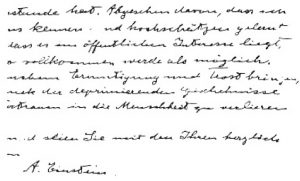 stunde hat. Abgesehen davon, dass ich
us kennen- und hochschätzen gelernt
dass es im öffentlichen Interesse liegt,
o vollkommen werde als möglich.
Ermutigung und Trost bringen,
der deprimierenden Geschehnisse
trauen in die Menschheit zu verlieren
und seien Sie mit den Ihren herzlich
A. Einstein.